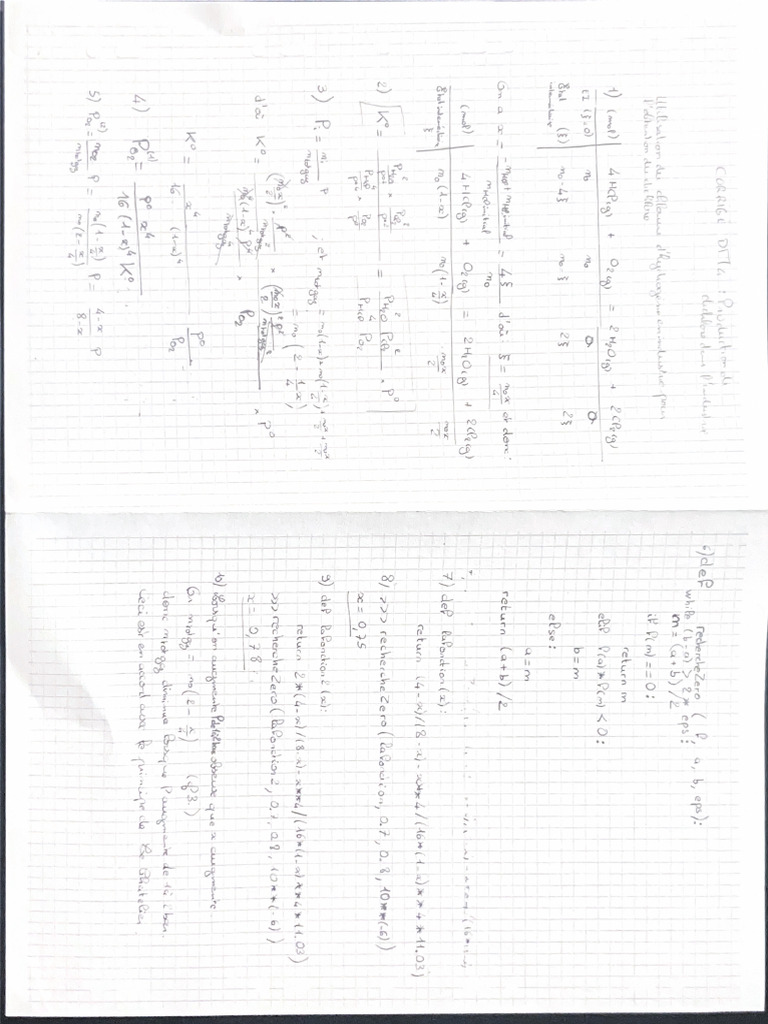 CORRIGÉ DM4a : Production de
dichlore dans l'industrie
Utilisation du chlorure d'hydrogène en industrie pour
l'obtention du dichlore
1) (mol) 4HCl(g) + O2(g) = 2H2O(g) + 2Cl2(g)
EI (ξ=0) n0 n0 0 0
État (ξ) n0-4ξ n0-ξ 2ξ 2ξ
intermédiaire
On a x = -nHCl+nHClinitial / nHClinitial = 4ξ / n0 d'où ξ = n0x/4 et donc :
(mol) 4HCl(g) + O2(g) = 2H2O(g) + 2Cl2(g)
État intermédiaire ξ n0(1-x) n0(1-x/4) n0x/2 n0x/2
2) K° = (PH2O²/P°² × PCl2²/P°²) / (PHCl⁴/P°⁴ × PO2/P°) = PH2O² PCl2² / PHCl⁴ PO2 × P°
3) Pi = ni/ntotgaz P, et ntotgaz = n0(1-x)+n0(1-x/4)+n0x/2+n0x/2
= n0(2-1/4x)
d'où K° = (n0x/2)² P²/ntotgaz² × (n0x/2)² P²/ntotgaz² / n0⁴(1-x)⁴P⁴/ntotgaz⁴ × PO2 × P°
K° = x⁴ / 16 (1-x)⁴ P°/PO2
4) PO2(1) = P° x⁴ / 16(1-x)⁴K°
5) PO2(2) = nO2/ntotgaz P = n0(1-x/4)/n0(2-x/4) P = 4-x/8-x P
6) def rechercheZero (f, a, b, eps):
while (b-a) > 2* eps:
m = (a+b)/2
if f(m) == 0:
return m
elif f(a)*f(m) < 0:
b=m
else:
a=m
return (a+b)/2
7) def lafonction(x):
return (4-x)/(8-x)-x**4/(16*(1-x)**4*11.03)
8) >>> rechercheZero(lafonction, 0.7, 0.8, 10**(-6))
x = 0,75
9) def lafonction2(x):
return 2*(4-x)/(8-x)-x**4/(16*(1-x)**4*11.03)
>>> rechercheZero(lafonction2, 0.7, 0.8, 10**(-6))
x = 0,78
10) Lorsqu'on augmente P, on observe que x augmente.
On ntotgaz = n0(2-x/4) (q3.)
donc ntotgaz diminue lorsque P augmente de 1 à 2 bar.
Ceci est en accord avec le principe de Le Chatelier.